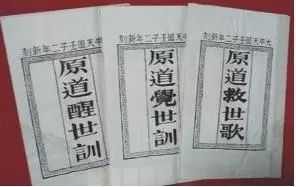 天國壬子二年新刻
原道醒世訓
天國壬子二年新刻
原道覺世訓
太平天國壬子二年新刻
原道救世歌